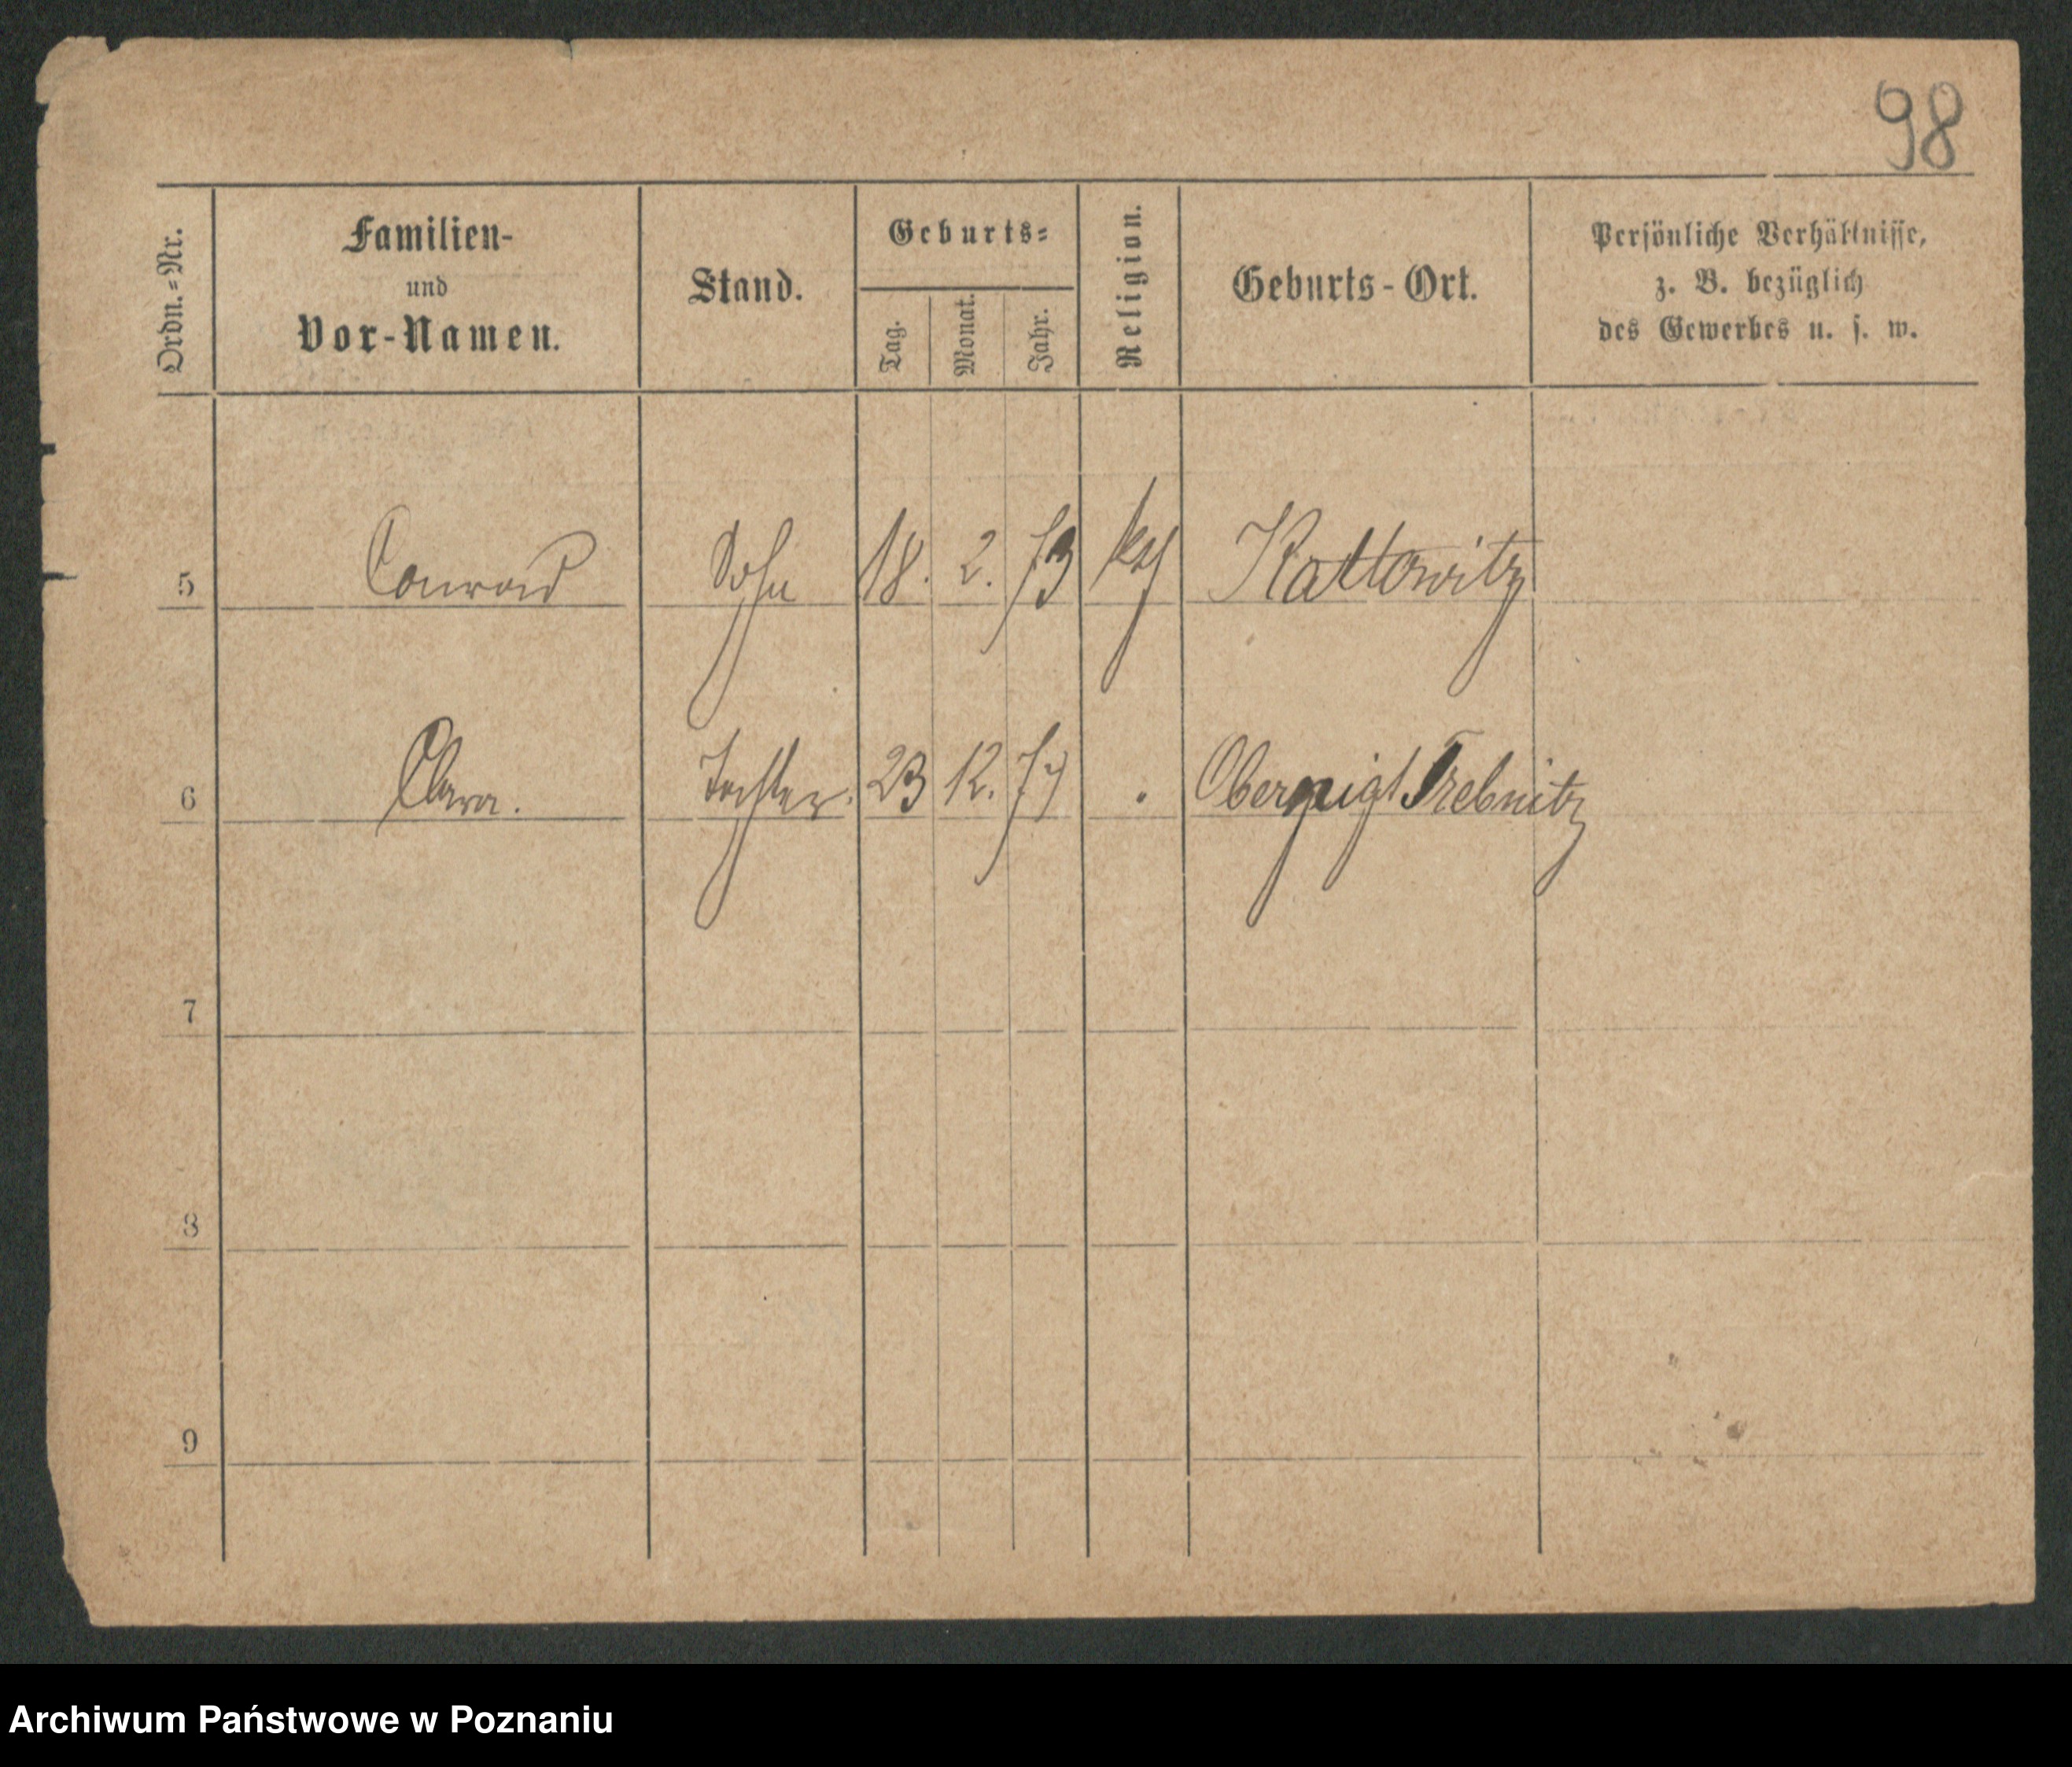 98
Ordn.-Nr.
Familien-
und
Vor-Namen.
Stand.
Geburts-
Tag.
Monat.
Jahr.
Religion.
Geburts-Ort.
Persönliche Verhältnisse,
z. B. bezüglich
des Gewerbes u. s. w.
5 Conrad Sohn 18. 2. 73 Kattowitz
6 Clara. Tochter. 23 12. Obernigk Trebnitz
7
8
9
Archiwum Państwowe w Poznaniu